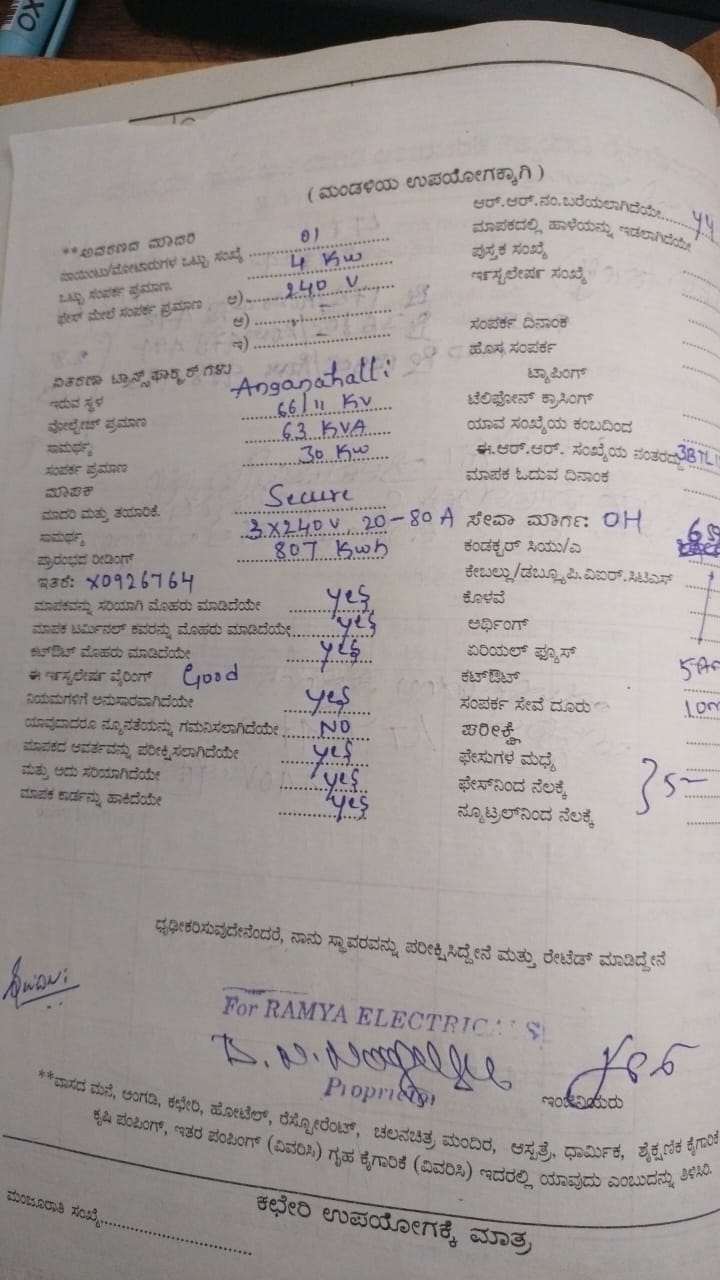 ( ಮಂಡಳಿಯ ಉಪಯೋಗಕ್ಕಾಗಿ )
**ಆವರಣದ ಮಾದರಿ
ಪಾಯಿಂಟು/ಮೋಟಾರುಗಳ ಒಟ್ಟು ಸಂಖ್ಯೆ 01
ಒಟ್ಟು ಸಂಪರ್ಕ ಪ್ರಮಾಣ. 4 KW
ಫೇಸ್ ಮೇಲೆ ಸಂಪರ್ಕ ಪ್ರಮಾಣ ಅ) 240 V
ಆ) -
ಇ) -
ವಿತರಣಾ ಟ್ರಾನ್ಸ್‌ಫಾರ್ಮರ್‌ಗಳು
ಇರುವ ಸ್ಥಳ Anganahalli
ವೋಲ್ಟೇಜ್ ಪ್ರಮಾಣ 66/11 KV
ಸಾಮರ್ಥ್ಯ 63 KVA
ಸಂಪರ್ಕ ಪ್ರಮಾಣ 30 KW
ಮಾಪಕ
ಮಾದರಿ ಮತ್ತು ತಯಾರಿಕೆ. Secure
ಸಾಮರ್ಥ್ಯ 3X240V 20-80 A
ಪ್ರಾರಂಭದ ರೀಡಿಂಗ್ 807 KWh
ಇತರೆ: X0926764
ಮಾಪಕವನ್ನು ಸರಿಯಾಗಿ ಮೊಹರು ಮಾಡಿದೆಯೇ yes
ಮಾಪಕ ಟರ್ಮಿನಲ್ ಕವರನ್ನು ಮೊಹರು ಮಾಡಿದೆಯೇ yes
ಕಟ್‌ಔಟ್ ಮೊಹರು ಮಾಡಿದೆಯೇ yes
ಈ ಇನ್ಸ್ಟಲೇಷನ್ ವೈರಿಂಗ್ Good
ನಿಯಮಗಳಿಗೆ ಅನುಸಾರವಾಗಿದೆಯೇ yes
ಯಾವುದಾದರೂ ನ್ಯೂನತೆಯನ್ನು ಗಮನಿಸಲಾಗಿದೆಯೇ NO
ಮಾಪಕದ ಆವರ್ತವನ್ನು ಪರೀಕ್ಷಿಸಲಾಗಿದೆಯೇ yes
ಮತ್ತು ಅದು ಸರಿಯಾಗಿದೆಯೇ yes
ಮಾಪಕ ಕಾರ್ಡನ್ನು ಹಾಕಿದೆಯೇ yes
ಆರ್.ಆರ್.ನಂ.ಬರೆಯಲಾಗಿದೆಯೇ
ಮಾಪಕದಲ್ಲಿ ಹಾಳೆಯನ್ನು ಇಡಲಾಗಿದೆಯೇ
ಪುಸ್ತಕ ಸಂಖ್ಯೆ
ಇನ್ಸ್ಟಲೇಷನ್ ಸಂಖ್ಯೆ
ಸಂಪರ್ಕ ದಿನಾಂಕ
ಹೊಸ ಸಂಪರ್ಕ
ಟ್ಯಾಪಿಂಗ್
ಟೆಲಿಫೋನ್ ಕ್ರಾಸಿಂಗ್
ಯಾವ ಸಂಖ್ಯೆಯ ಕಂಬದಿಂದ
ಈ.ಆರ್.ಆರ್. ಸಂಖ್ಯೆಯ ನಂತರದ್ದು
ಮಾಪಕ ಓದುವ ದಿನಾಂಕ
ಸೇವಾ ಮಾರ್ಗ: OH
ಕಂಡಕ್ಟರ್ ಸಿಯು/ಎ
ಕೇಬಲ್ಲು/ಡಬ್ಲ್ಯೂಪಿ.ವಿಐಆರ್.ಸಿಟಿಎಸ್
ಕೊಳವೆ
ಅರ್ಥಿಂಗ್
ಏರಿಯಲ್ ಫ್ಯೂಸ್
ಕಟ್‌ಔಟ್
ಸಂಪರ್ಕ ಸೇವೆ ದೂರು
ಪರೀಕ್ಷೆ
ಫೇಸುಗಳ ಮಧ್ಯೆ
ಫೇಸ್‌ನಿಂದ ನೆಲಕ್ಕೆ
ನ್ಯೂಟ್ರಲ್‌ನಿಂದ ನೆಲಕ್ಕೆ
ಧೃಢೀಕರಿಸುವುದೇನೆಂದರೆ, ನಾನು ಸ್ಥಾವರವನ್ನು ಪರೀಕ್ಷಿಸಿದ್ದೇನೆ ಮತ್ತು ರೇಟೆಡ್ ಮಾಡಿದ್ದೇನೆ
For RAMYA ELECTRICALS
Proprietor
ಇಂಜಿನಿಯರು
**ವಾಸದ ಮನೆ, ಅಂಗಡಿ, ಕಛೇರಿ, ಹೋಟೆಲ್, ರೆಸ್ಟೋರೆಂಟ್, ಚಲನಚಿತ್ರ ಮಂದಿರ, ಆಸ್ಪತ್ರೆ, ಧಾರ್ಮಿಕ, ಶೈಕ್ಷಣಿಕ ಕೈಗಾರಿಕೆ
ಕೃಷಿ ಪಂಪಿಂಗ್, ಇತರ ಪಂಪಿಂಗ್ (ವಿವರಿಸಿ) ಗೃಹ ಕೈಗಾರಿಕೆ (ವಿವರಿಸಿ) ಇದರಲ್ಲಿ ಯಾವುದು ಎಂಬುದನ್ನು ತಿಳಿಸಿರಿ.
ಕಛೇರಿ ಉಪಯೋಗಕ್ಕೆ ಮಾತ್ರ
ಮಂಜೂರಾತಿ ಸಂಖ್ಯೆ